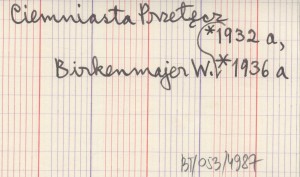 Ciemniasta Przełęcz
*1932 a,
Birkenmajer W. *1936 a
BJ/053/4987